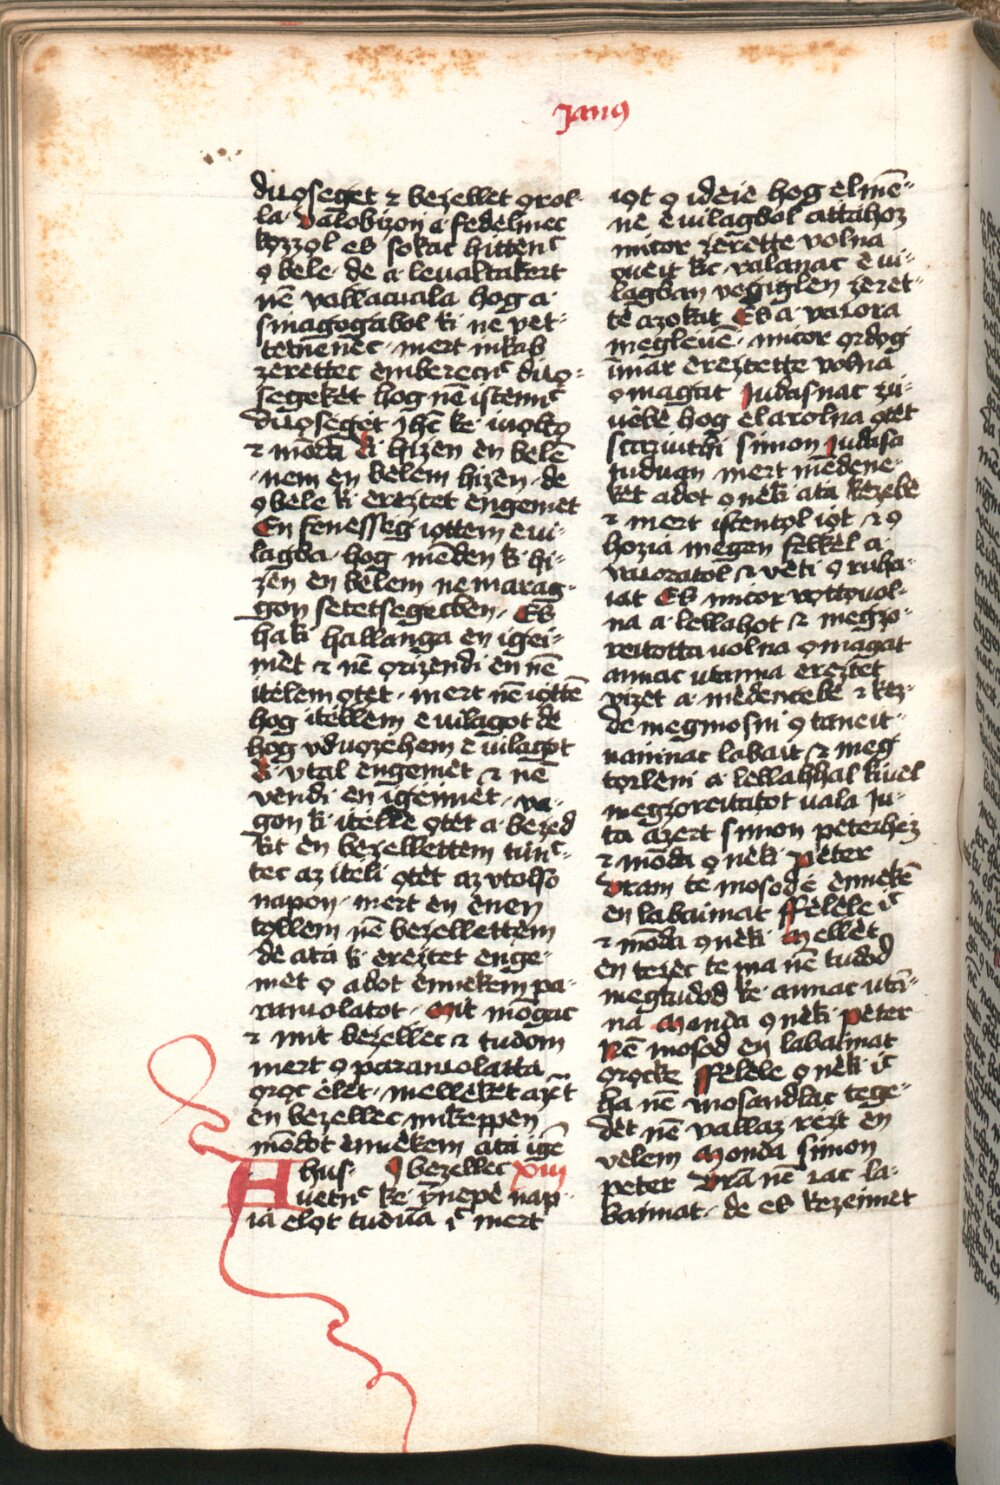 Janꝰ
duꝍseget ⁊ bezellet ꝍrol-
la· Dalobizon a· fedelmec
kꝍzzꝍl es sokac hittenc
ꝍ bele· de a· leualtakert
nē vallacuala hog a·
sinagogabol ki ne vet-
tetnenec· mert inkab
zerettec embereknc duꝍ-
segeket hog nē istennc
duꝍseget Jhc ke· iuolto
⁊ moda ki hizen en belē
nem en belem hizen· de
ꝍ bele ki ereztet engemet
En fenesseg iottem e vi-
lagba· hog menden ki hi-
zen en belem ne marag-
gon setetsegecben· Es
haki hallanga en igei-
met ⁊ nē ꝍrizendi en nē
itelem ꝍtet· mert nē iottē
hog itellem e vilagot de
hog vduꝍzehem e vilagot
ki vtal engemet ⁊ nē
vendi en igeimet· va-
gon ki itelle ꝍtet a· bezed
kit en bezellettem tūnc-
tec az iteli ꝍtet az vtolso
napon· mert en enen
tꝍllem nē bezellettem
de ata ki ereztet enge-
met ꝍ adot ennekem pa-
ranꝍolatot· Mit mōgac
⁊ mit bezellec ⁊ tudom
mert ꝍ paranolatta
ꝍrꝍc elet· melleket azt
en bezellec mikeppen
mōdot ennekem ata igē
bezellec xiij
Ahus·
uetnc ke ynnepe nap-
ia elot tuduā ic mert
iot ꝍ ideie hog elmē-
ne e vilagbol attahoz
micor zerette volna
ꝍueit kic valanac e vi-
lagban vegiglen zeret-
te azokat Es a· vaiora
megleue· micor ꝍrdꝍg
imar ereztette volna
ꝍ magat Judasnac zu-
uebe hog elarolna ꝍtet
scariuthi simon Judasa
Juduan mert mēdene-
ket adot ꝍ neki ata kezebe
⁊ mert istentꝍl iot ⁊ ꝍ
hozia megen felkel a·
vaioratol ⁊ veti ꝍ ruha-
iat Es micor vꝍttouol-
na a· lellahot ⁊ megzo-
reitotta uolna ꝍ magat
annac vtanna ereztet
vizet a· medencebe ⁊ kez-
de megmosni ꝍ taneit-
naninac labait ⁊ meg
tꝍrleni a· lellahhal kiuel
megzoreitatot uala Ju-
ta azert simon peterhez
⁊ mōda ꝍ neki peter
Vram te mosode ennekē
en labaimat Felele ic
⁊ mōda ꝍ neki Mellet
en tezec te ma nē tudod
megtudod ke· annac utā-
na Monda ꝍ neki peter
Nē mosod en labaimat
ꝍrꝍcke Felele ꝍ neki ic
ha nē mosandlac tege-
det nē vallaz rezt en
velem Monda simon
peter Vrā nē iac la-
baimat· de es kezeimet